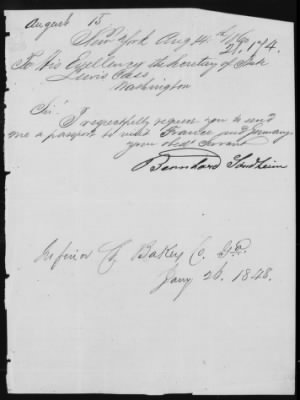 August 15
New York Aug 14.
To His Exellency the Secretary of State
Lewis Cass
Washington
Sir!
I respectfully request you to send
me a passport to visit France and Germany
your obedt Servant
Bernhard Sondheim
Superior Ct, Baker C. Ga.
Jany 26. 1848.